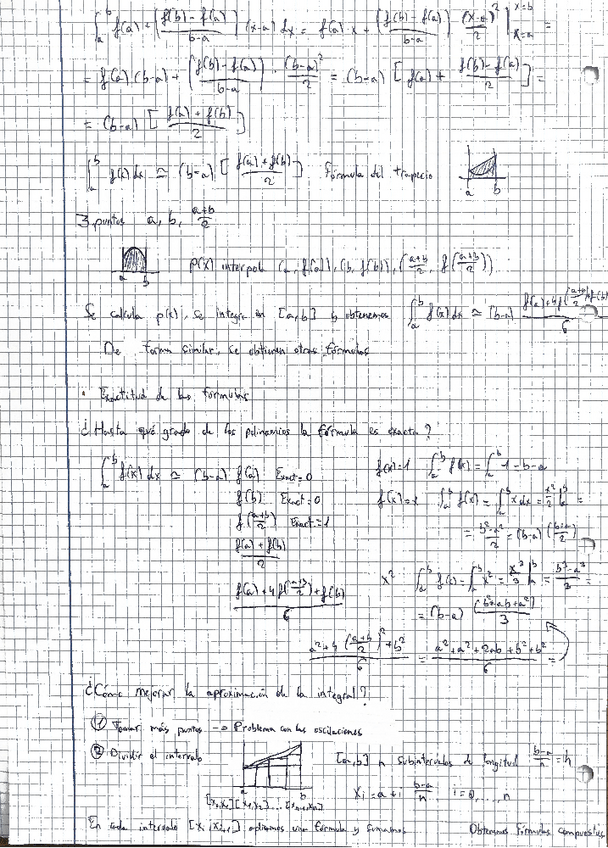 ∫_a^b f(a) + (f(b)-f(a))/(b-a) (x-a) dx = f(a)·x + (f(b)-f(a))/(b-a) · (x-a)²/2 |_{x=a}^{x=b} =
= f(a)(b-a) + (f(b)-f(a))/(b-a) · (b-a)²/2 = (b-a) [f(a) + (f(b)-f(a))/2] =
= (b-a) [(f(a)+f(b))/2]
∫_a^b f(x) dx ≃ (b-a) [(f(a)+f(b))/2] fórmula del trapecio
a b
3 puntos a, b, (a+b)/2
a b
p(x) interpola (a, f(a)), (b, f(b)), ((a+b)/2, f((a+b)/2))
Se calcula p(x), se integra en [a,b] y obtenemos ∫_a^b f(x) dx ≃ (b-a) (f(a)+4f((a+b)/2)+f(b))/6
De forma similar, se obtienen otras fórmulas
• Exactitud de las fórmulas
¿Hasta qué grado de los polinomios la fórmula es exacta?
∫_a^b f(x) dx ≃ (b-a) f(a) Exact=0
f(b) Exact=0
f((a+b)/2) Exact=1
(f(a)+f(b))/2
(f(a)+4f((a+b)/2)+f(b))/6
f(x)=1 ∫_a^b f(x) = ∫_a^b 1 = b-a
f(x)=x ∫_a^b f(x) = ∫_a^b x dx = x²/2 |_a^b =
= (b²-a²)/2 = (b-a) ((b+a)/2)
x² ∫_a^b f(x) = ∫_a^b x² = x³/3 |_a^b = (b³-a³)/3 =
= (b-a) (b²+ab+a²)/3
(a²+4((a+b)/2)²+b²)/6 = (a²+a²+2ab+b²+b²)/6 =
¿Cómo mejorar la aproximación de la integral?
① Tomar más puntos → Problema con las oscilaciones
② Dividir el intervalo
a b
[x₀,x₁][x₁,x₂]...[xₙ₋₁,xₙ]
[a,b] n subintervalos de longitud (b-a)/n = h
xᵢ = a+i (b-a)/n i=0,...,n
En cada intervalo [xᵢ,xᵢ₊₁] aplicamos una fórmula y sumamos. Obtenemos fórmulas compuestas